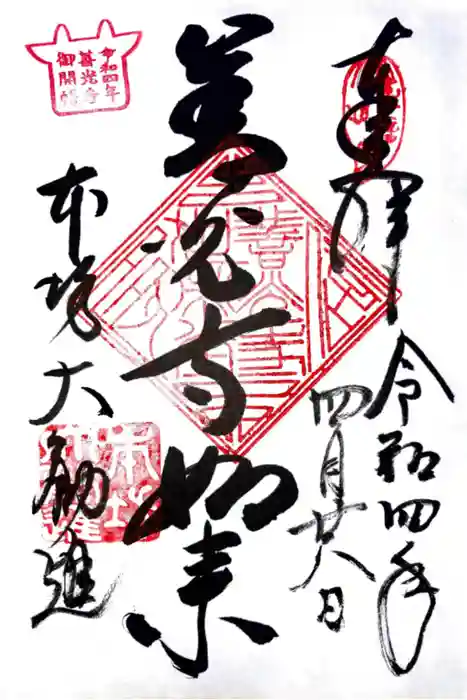 奉拝
令和四年
四月廿八日
善光寺如来
本坊大勧進
令和四年
善光寺
御開帳